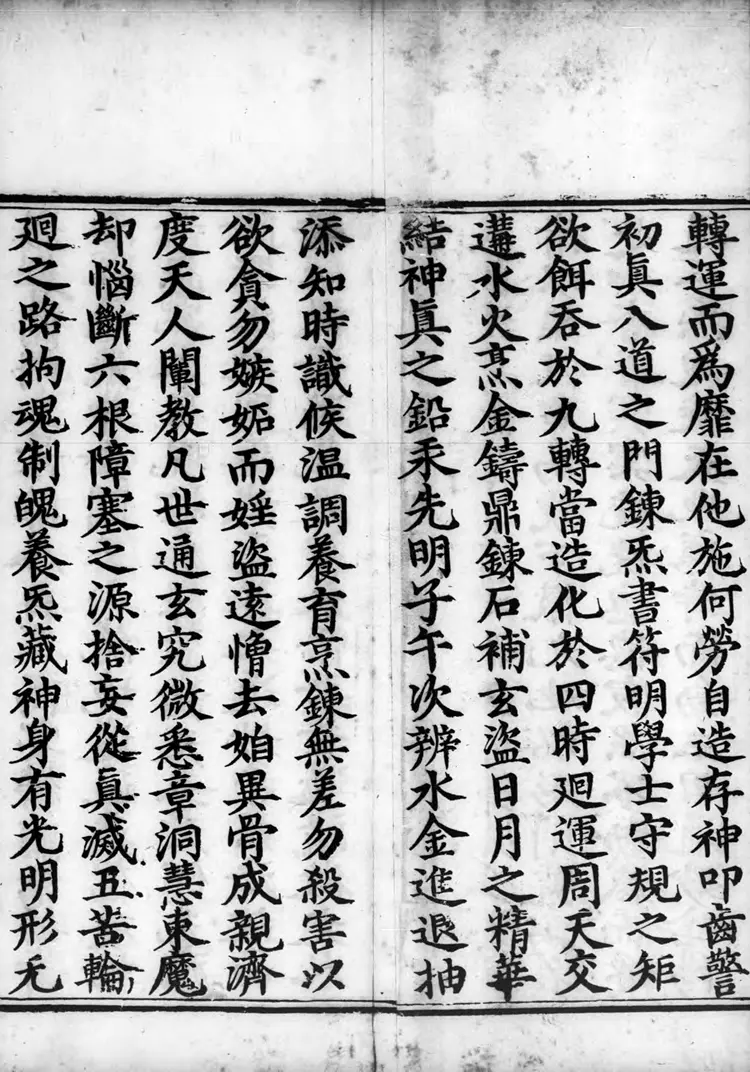 轉運而爲靡在他施何勞自造存神叩齒警
初眞八道之門鍊炁書符明學士守規之矩
欲餌吞於九轉當造化於四時廻運周天交
遘水火烹金鑄鼎鍊石補玄盜日月之精華
結神眞之鉛汞先明子午次辨水金進退抽
添知時識候温調養育烹鍊無差勿殺害以
欲貪勿嫉妬而婬盜遠憎去妬異骨成親濟
度天人闡教凡世通玄究微悉章洞慧束魔
却惱斷六根障塞之源捨妄從眞滅五苦輪
廻之路拘魂制魄養炁藏神身有光明形无